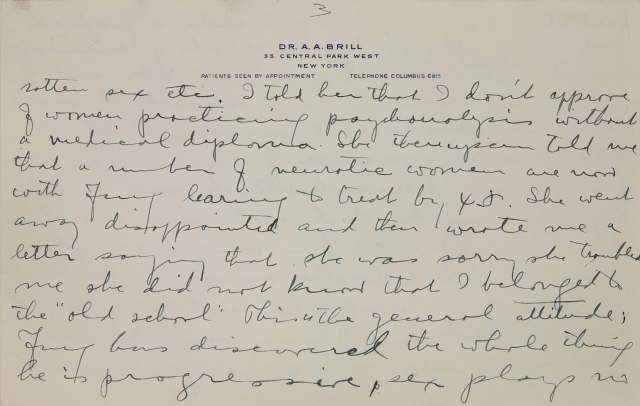 3
DR. A. A. BRILL
55 CENTRAL PARK WEST
NEW YORK
PATIENTS SEEN BY APPOINTMENT TELEPHONE COLUMBUS 6815
rotten sex etc. I told her that I don't approve
of women practicing psychoanalysis without
a medical diploma. She thereupon told me
that a number of neurotic women are now
with Jung learing to treat by ΨA. She went
away disappointed and then wrote me a
letter saying that she was sorry she troubled
me she did not know that I belonged to
the "old school" This is the general attitude;
Jung has discovered the whole thing
he is progressive, sex plays no